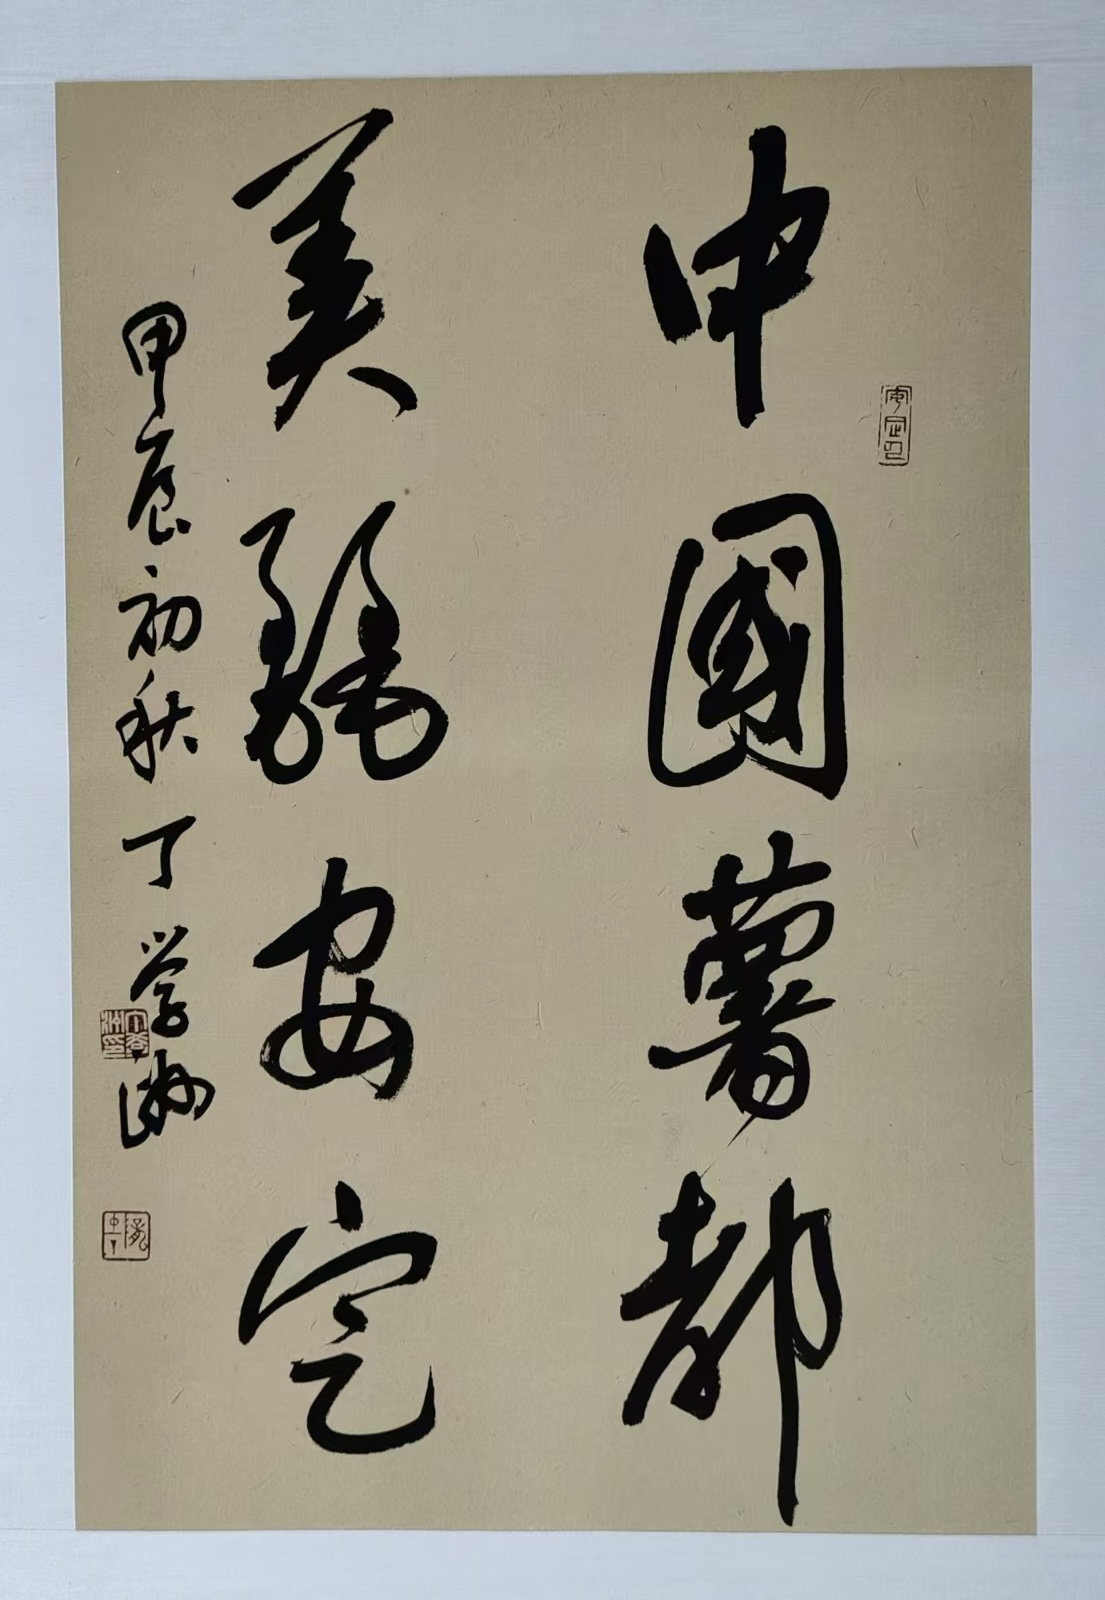 中國薯都
美麗安定
甲辰初秋丁学渊